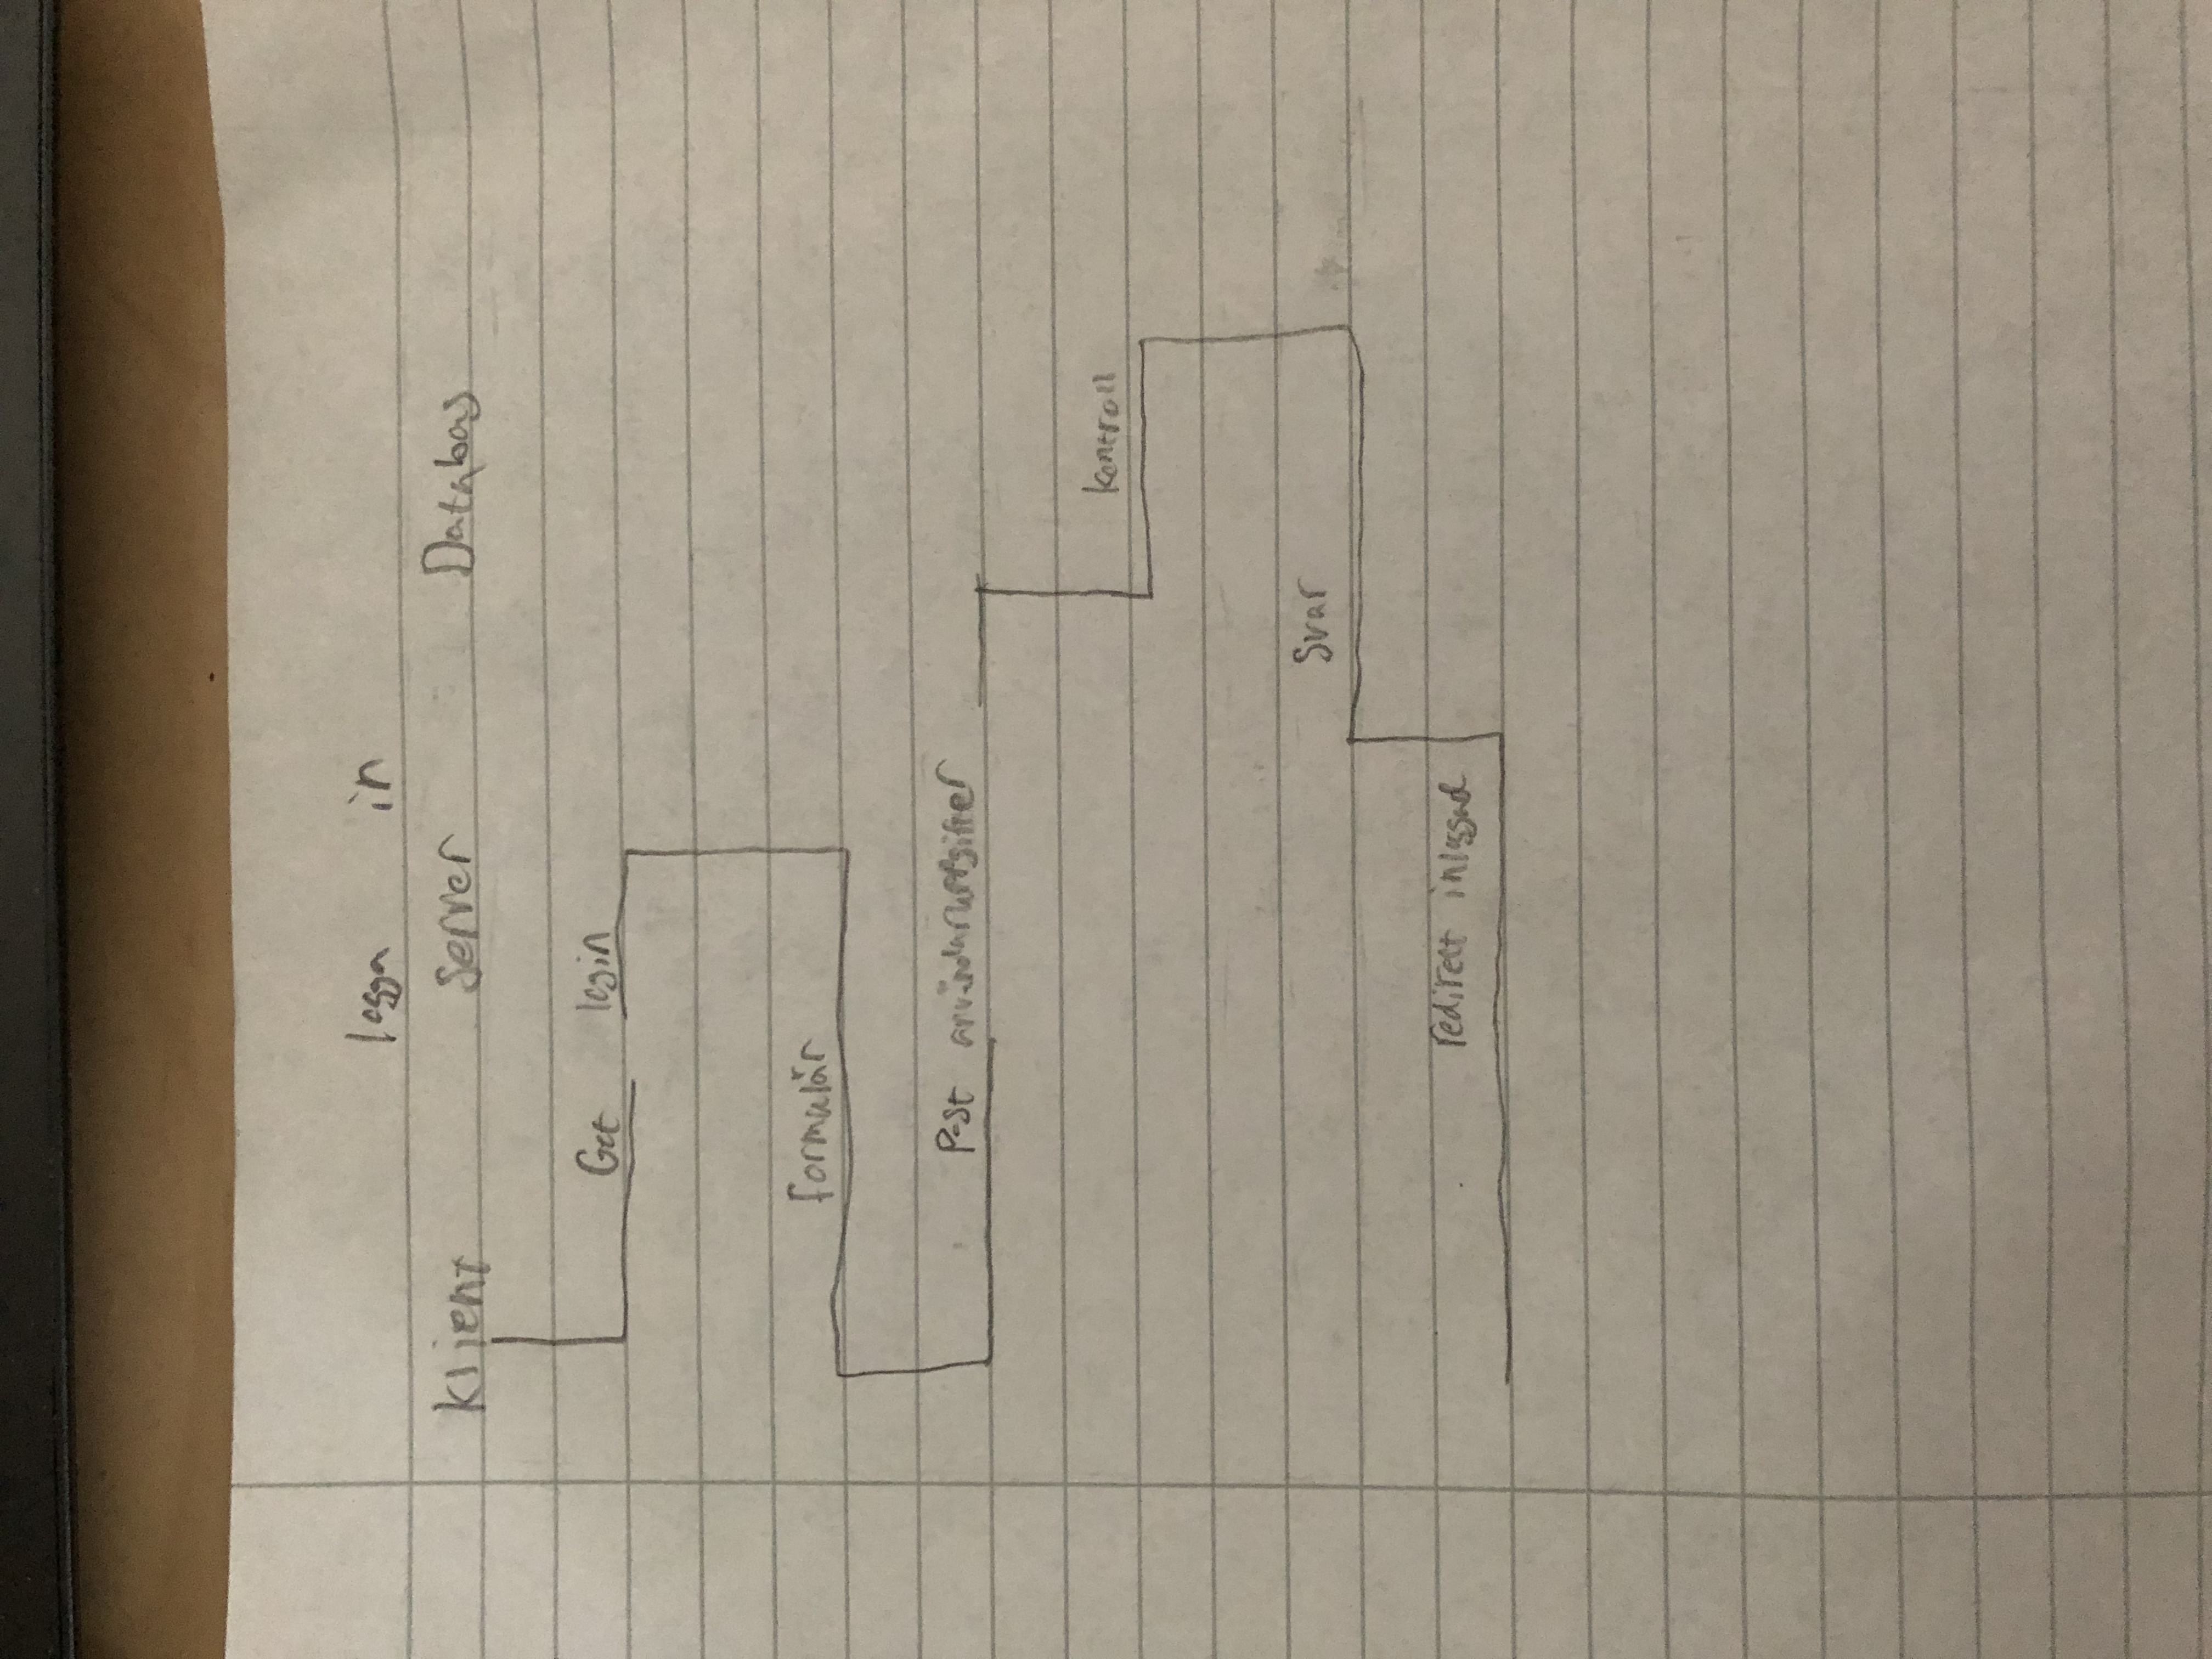 logga in
Klient Server Databas
Get login
formulär
Post användaruppgifter
kontroll
Svar
redirect inloggad